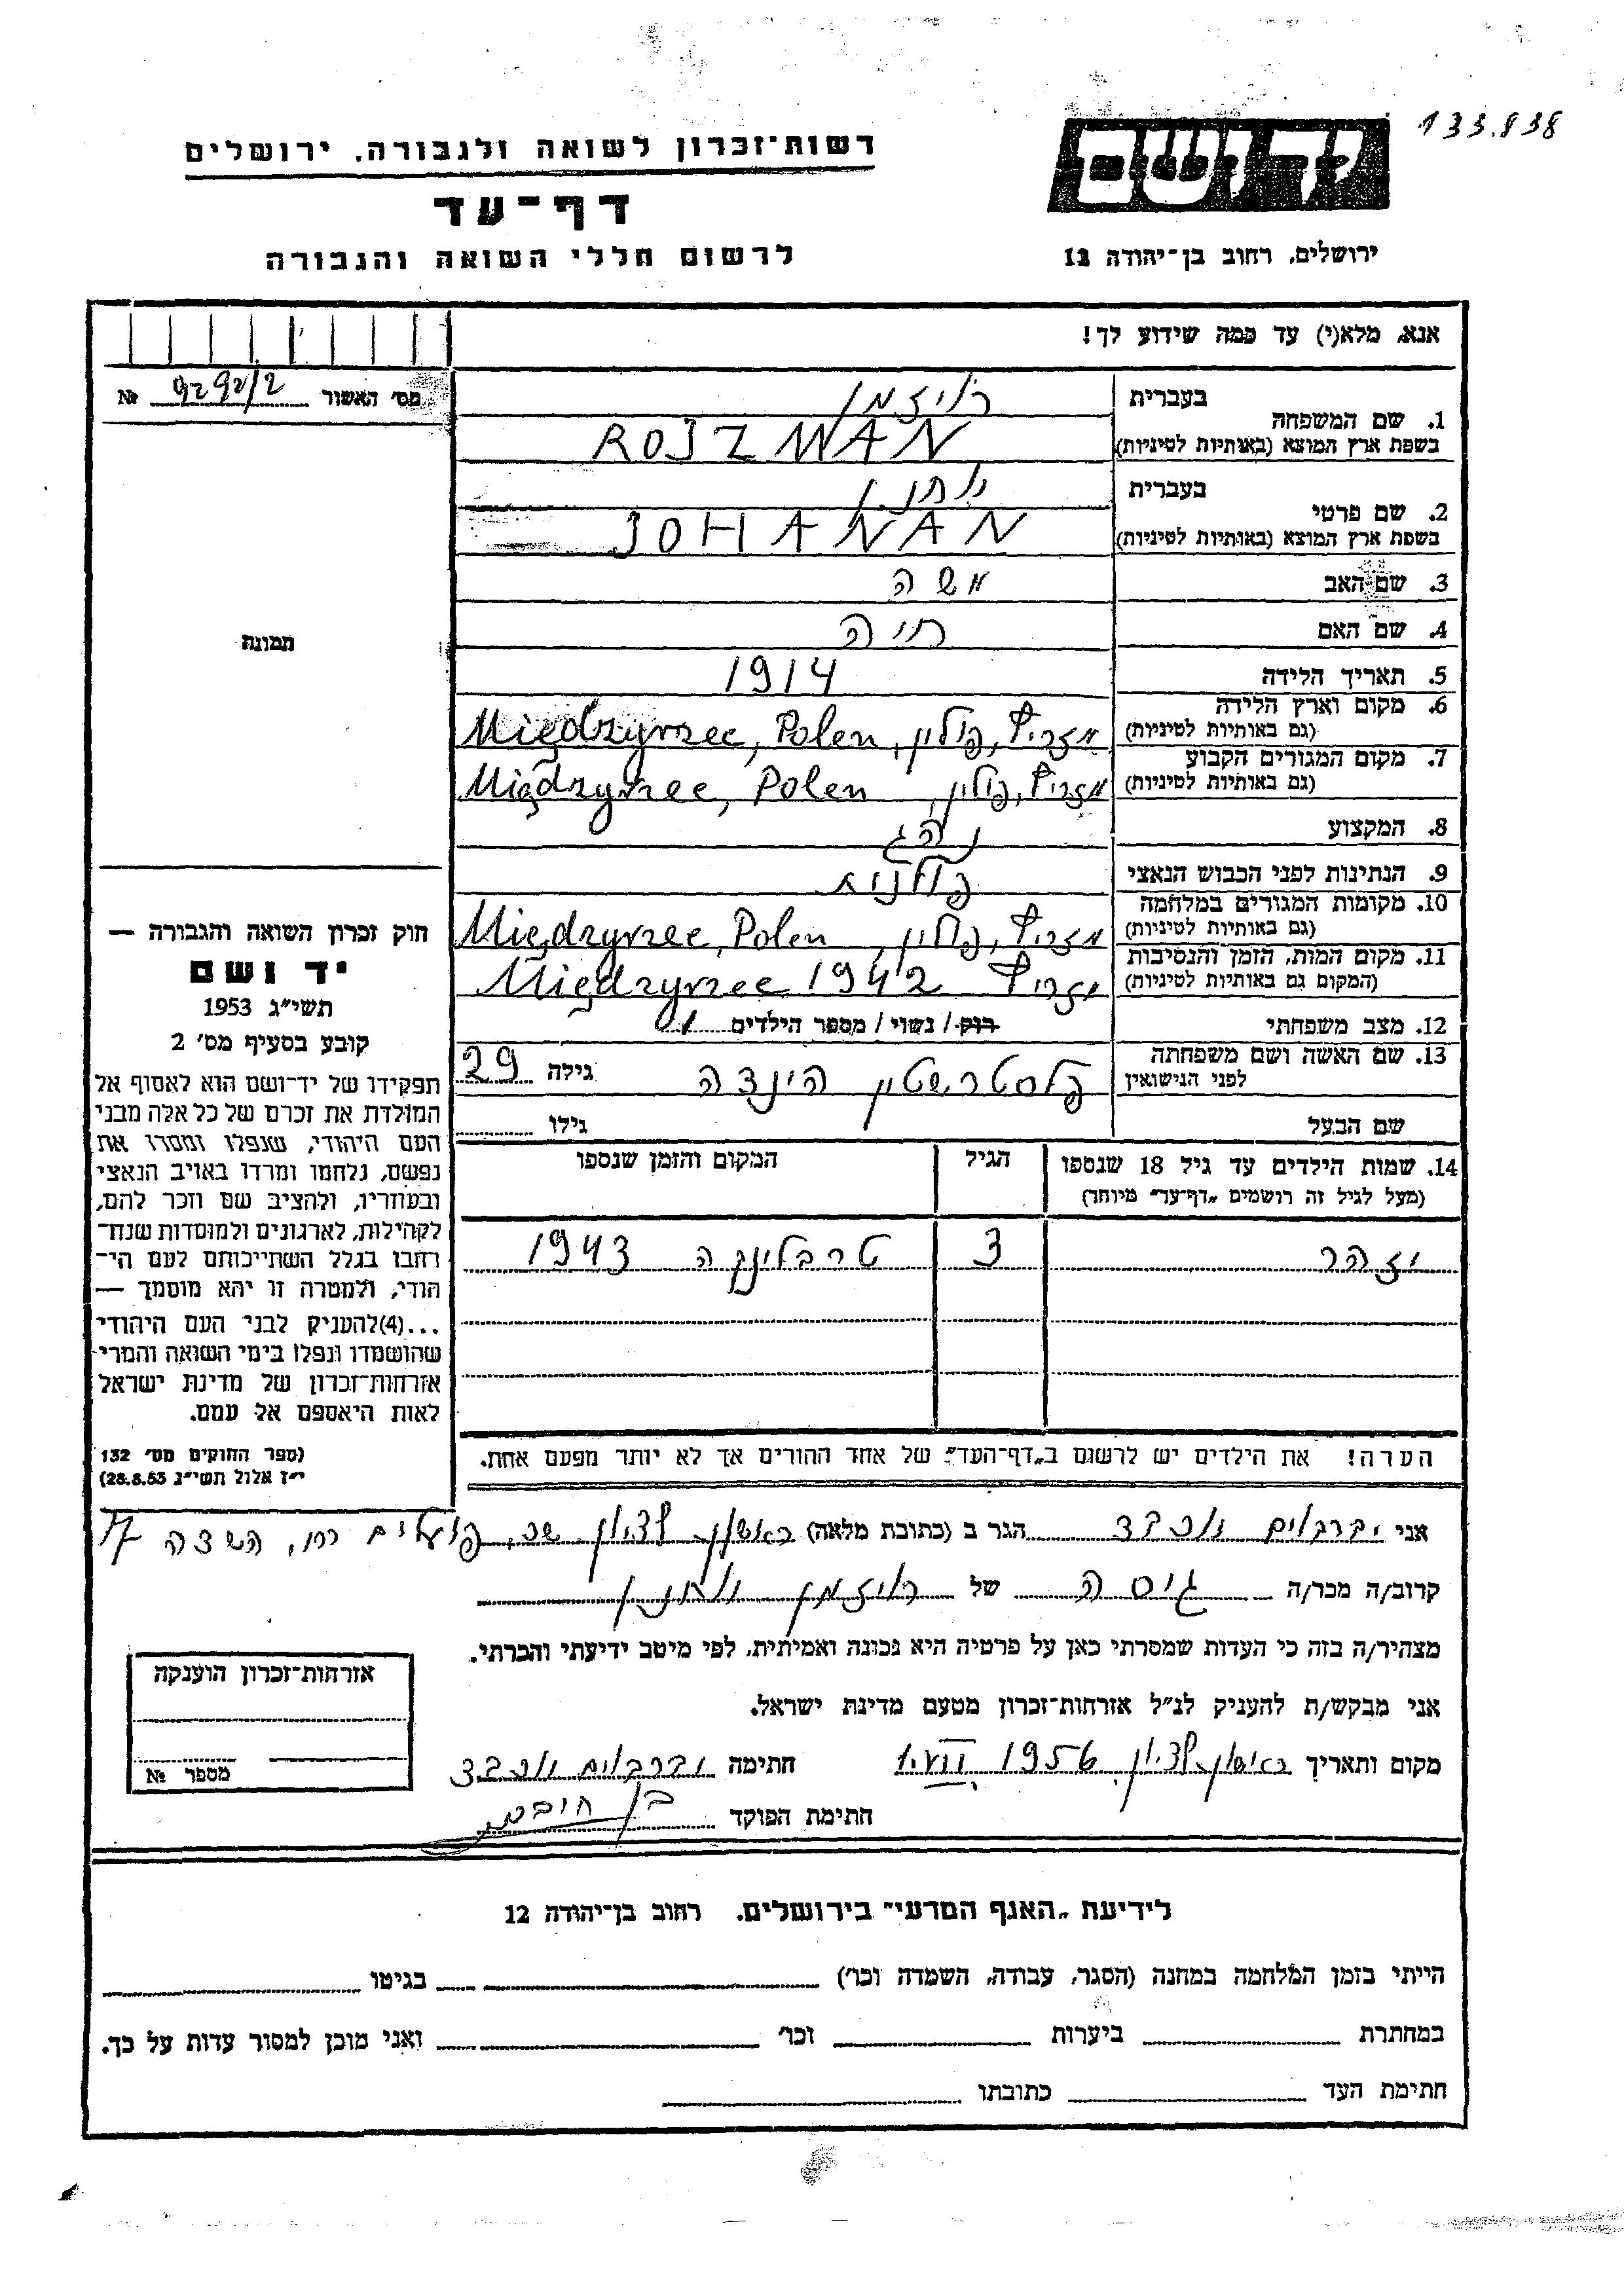 133.838
רשות־זכרון לשואה ולגבורה, ירושלים
ידושם
דף־עד
לרשום חללי השואה והגבורה
ירושלים, רחוב בן־יהודה 12
אנא, מלא(י) עד כמה שידוע לך!
מס׳ האשור 9292/2 №
1. שם המשפחה
בעברית רויזמן
בשפת ארץ המוצא (באותיות לטיניות) ROJZMAN
2. שם פרטי
בעברית
בשפת ארץ המוצא (באותיות לטיניות) JOHANAN
3. שם האב משה
4. שם האם חיה
תמונה
5. תאריך הלידה 1914
6. מקום וארץ הלידה
(גם באותיות לטיניות) מזריץ, פולין, Międzyrzec, Polen
7. מקום המגורים הקבוע
(גם באותיות לטיניות) מזריץ, פולין, Międzyrzec, Polen
8. המקצוע נהג
9. הנתינות לפני הכבוש הנאצי פולנית
10. מקומות המגורים במלחמה
(גם באותיות לטיניות) מזריץ, פולין, Międzyrzec, Polen
11. מקום המות, הזמן והנסיבות
(המקום גם באותיות לטיניות) מזריץ Międzyrzec 1942
12. מצב משפחתי רווק / נשוי / מספר הילדים 1
13. שם האשה ושם משפחתה
לפני הנישואין הינדה גילה 29
שם הבעל גילו
14. שמות הילדים עד גיל 18 שנספו
(מעל לגיל זה רושמים „דף־עד״ מיוחד)
הגיל
המקום והזמן שנספו
יזהר 3 טרבלינקה 1943
הערה! את הילדים יש לרשום ב„דף־העד״ של אחד ההורים אך לא יותר מפעם אחת.
חוק זכרון השואה והגבורה —
יד ושם
תשי״ג 1953
קובע בסעיף מס׳ 2
תפקידו של יד־ושם הוא לאסוף אל
המולדת את זכרם של כל אלה מבני
העם היהודי, שנפלו ומסרו את
נפשם, נלחמו ומרדו באויב הנאצי
ובעוזריו, ולהציב שם וזכר להם,
לקהילות, לארגונים ולמוסדות שנח־
רבו בגלל השתייכותם לעם הי־
הודי, ולמטרה זו יהא מוסמך —
...(4)להעניק לבני העם היהודי
שהושמדו ונפלו בימי השואה והמרי
אזרחות־זכרון של מדינת ישראל
לאות היאספם אל עמם.
(ספר החוקים מס׳ 132
י״ז אלול תשי״ג 28.8.53)
אני הגר ב (כתובת מלאה) ראשון לציון שכ. פועלים רח, השדה 17
קרוב/ה מכר/ה גיסה של רויזמן
מצהיר/ה בזה כי העדות שמסרתי כאן על פרטיה היא נכונה ואמיתית, לפי מיטב ידיעתי והכרתי.
אני מבקש/ת להעניק לנ״ל אזרחות־זכרון מטעם מדינת ישראל.
מקום ותאריך ראשון לציון 1.VII 1956 חתימה
חתימת הפוקד
אזרחות־זכרון הוענקה
מספר №
לידיעת „האגף המדעי״ בירושלים, רחוב בן־יהודה 12
הייתי בזמן המלחמה במחנה (הסגר, עבודה, השמדה וכר׳) בגיטו
במחתרת ביערות וכר׳ ואני מוכן למסור עדות על כך.
חתימת העד כתובתו